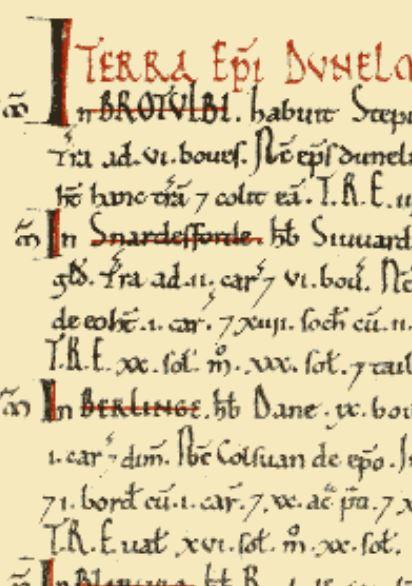 TERRA Epī DUNELM
m̄ In BROTULBI. habuit Step
t̄ra ad. vi. boues. Nc̄ ep̄s dunel
h̄t hanc t̄ra ⁊ colit eā. T.R.E.
m̄ In Snardesforde. hb̄ Siuuard
gld̄. t̄ra ad. ii. car̄ ⁊ vi. bou̅. Nc̄
de eo ht̄. i. car̄. ⁊ xiiii. soch̄ cū. ii.
T.R.E. xx. sol̄. m̊. xxx. sol̄. ⁊ tail
m̄ In BERLINGE. hb̄ Dane. ix. bou
i. car̄ ⁊ dim̄. Ibī Colsuan de ep̄o.
⁊ i. bord̄ cū. i. car̄. ⁊ xx. ac̄ p̄ti. ⁊
T.R.E. ual̄ xvi. sol̄. m̊. xx. sol̄.
m̄ In